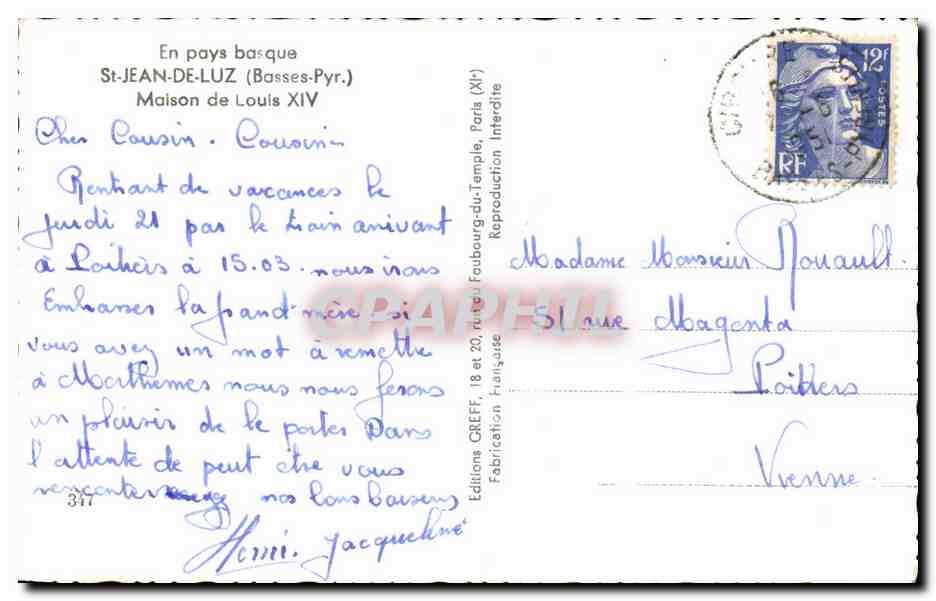 En pays basque
St-JEAN-DE-LUZ (Basses-Pyr.)
Maison de Louis XIV
Cher Cousin. Cousine
Rentrant de vacances le
jeudi 21 par le train arrivant
à Poitiers à 15.03. nous irons
Embrasser la grand-mère si
vous avez un mot à remettre
à Marthemes nous nous ferons
un plaisir de le porter Dans
l'attente de peut être vous
rencontrer nos bons baisers
Henri. Jacqueline
347
Editions GREFF, 18 et 20, rue du Faubourg-du-Temple, Paris (XIe)
Fabrication Française Reproduction Interdite
12F
POSTES
RF
Madame Monsieur Rouault.
51 rue Magenta
Poitiers
Vienne.
CPAPHIL